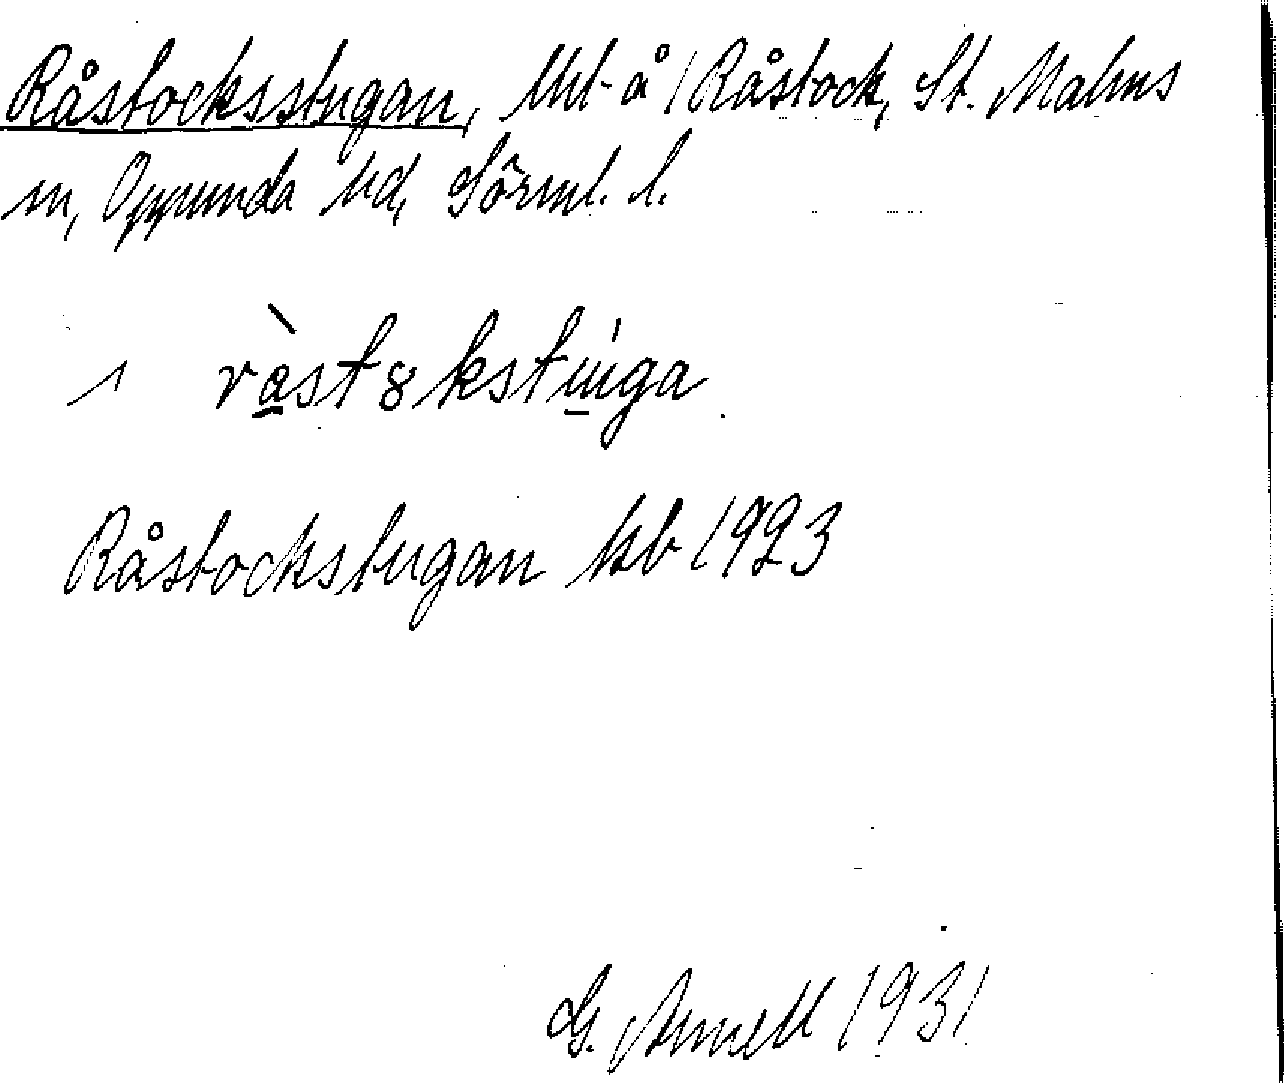 Råstocksstugan, lht å 1 Råstock, St. Malms
sn, Oppunda hd, Sörml. l.
ràst8kstùga
Råstockstugan kb 1923
G. Arnell 1931